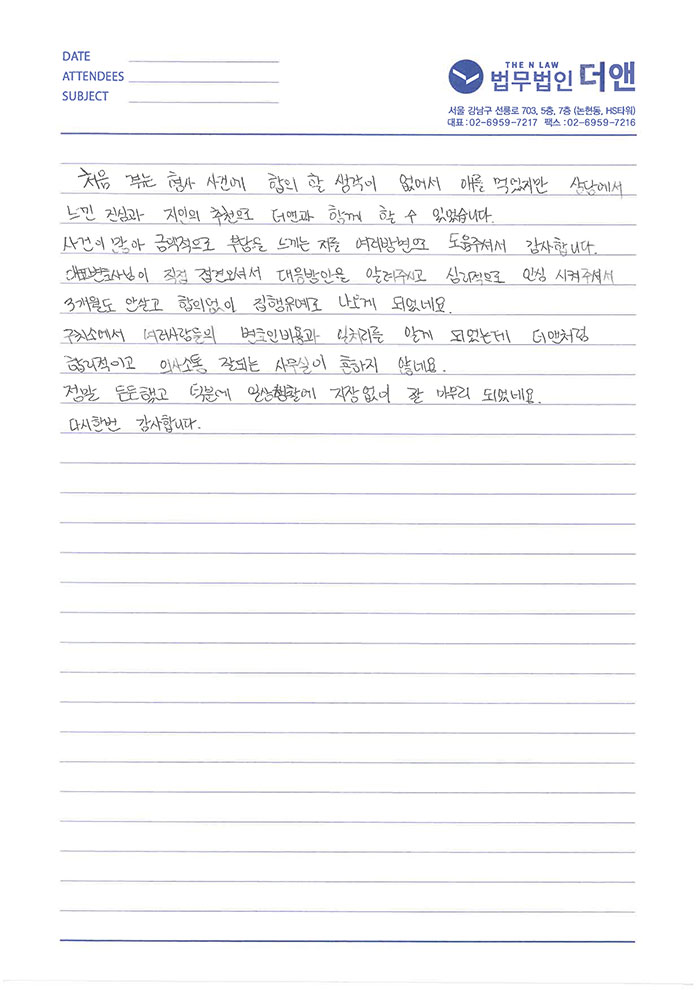 DATE
ATTENDEES
SUBJECT
THE N LAW
법무법인 더앤
서울 강남구 선릉로 703, 5층, 7층 (논현동, HS타워)
대표:02-6959-7217 팩스:02-6959-7216
처음 겪는 형사 사건에 합의 할 생각이 없어서 애를 먹었지만 상담에서
느낀 진심과 지인의 추천으로 더앤과 함께 할 수 있었습니다.
사건이 많아 금액적으로 부담을 느끼는 저를 여러방면으로 도움주셔서 감사합니다.
대표변호사님이 직접 접견오셔서 대응방안을 알려주시고 심리적으로 안심 시켜주셔서
3개월도 안살고 합의없이 집행유예로 나오게 되었네요.
구치소에서 여러사람들의 변호인비용과 일처리를 알게 되었는데 더앤처럼
합리적이고 의사소통 잘되는 사무실이 흔하지 않네요.
정말 든든했고 덕분에 일상생활에 지장없이 잘 마무리 되었네요.
다시한번 감사합니다.